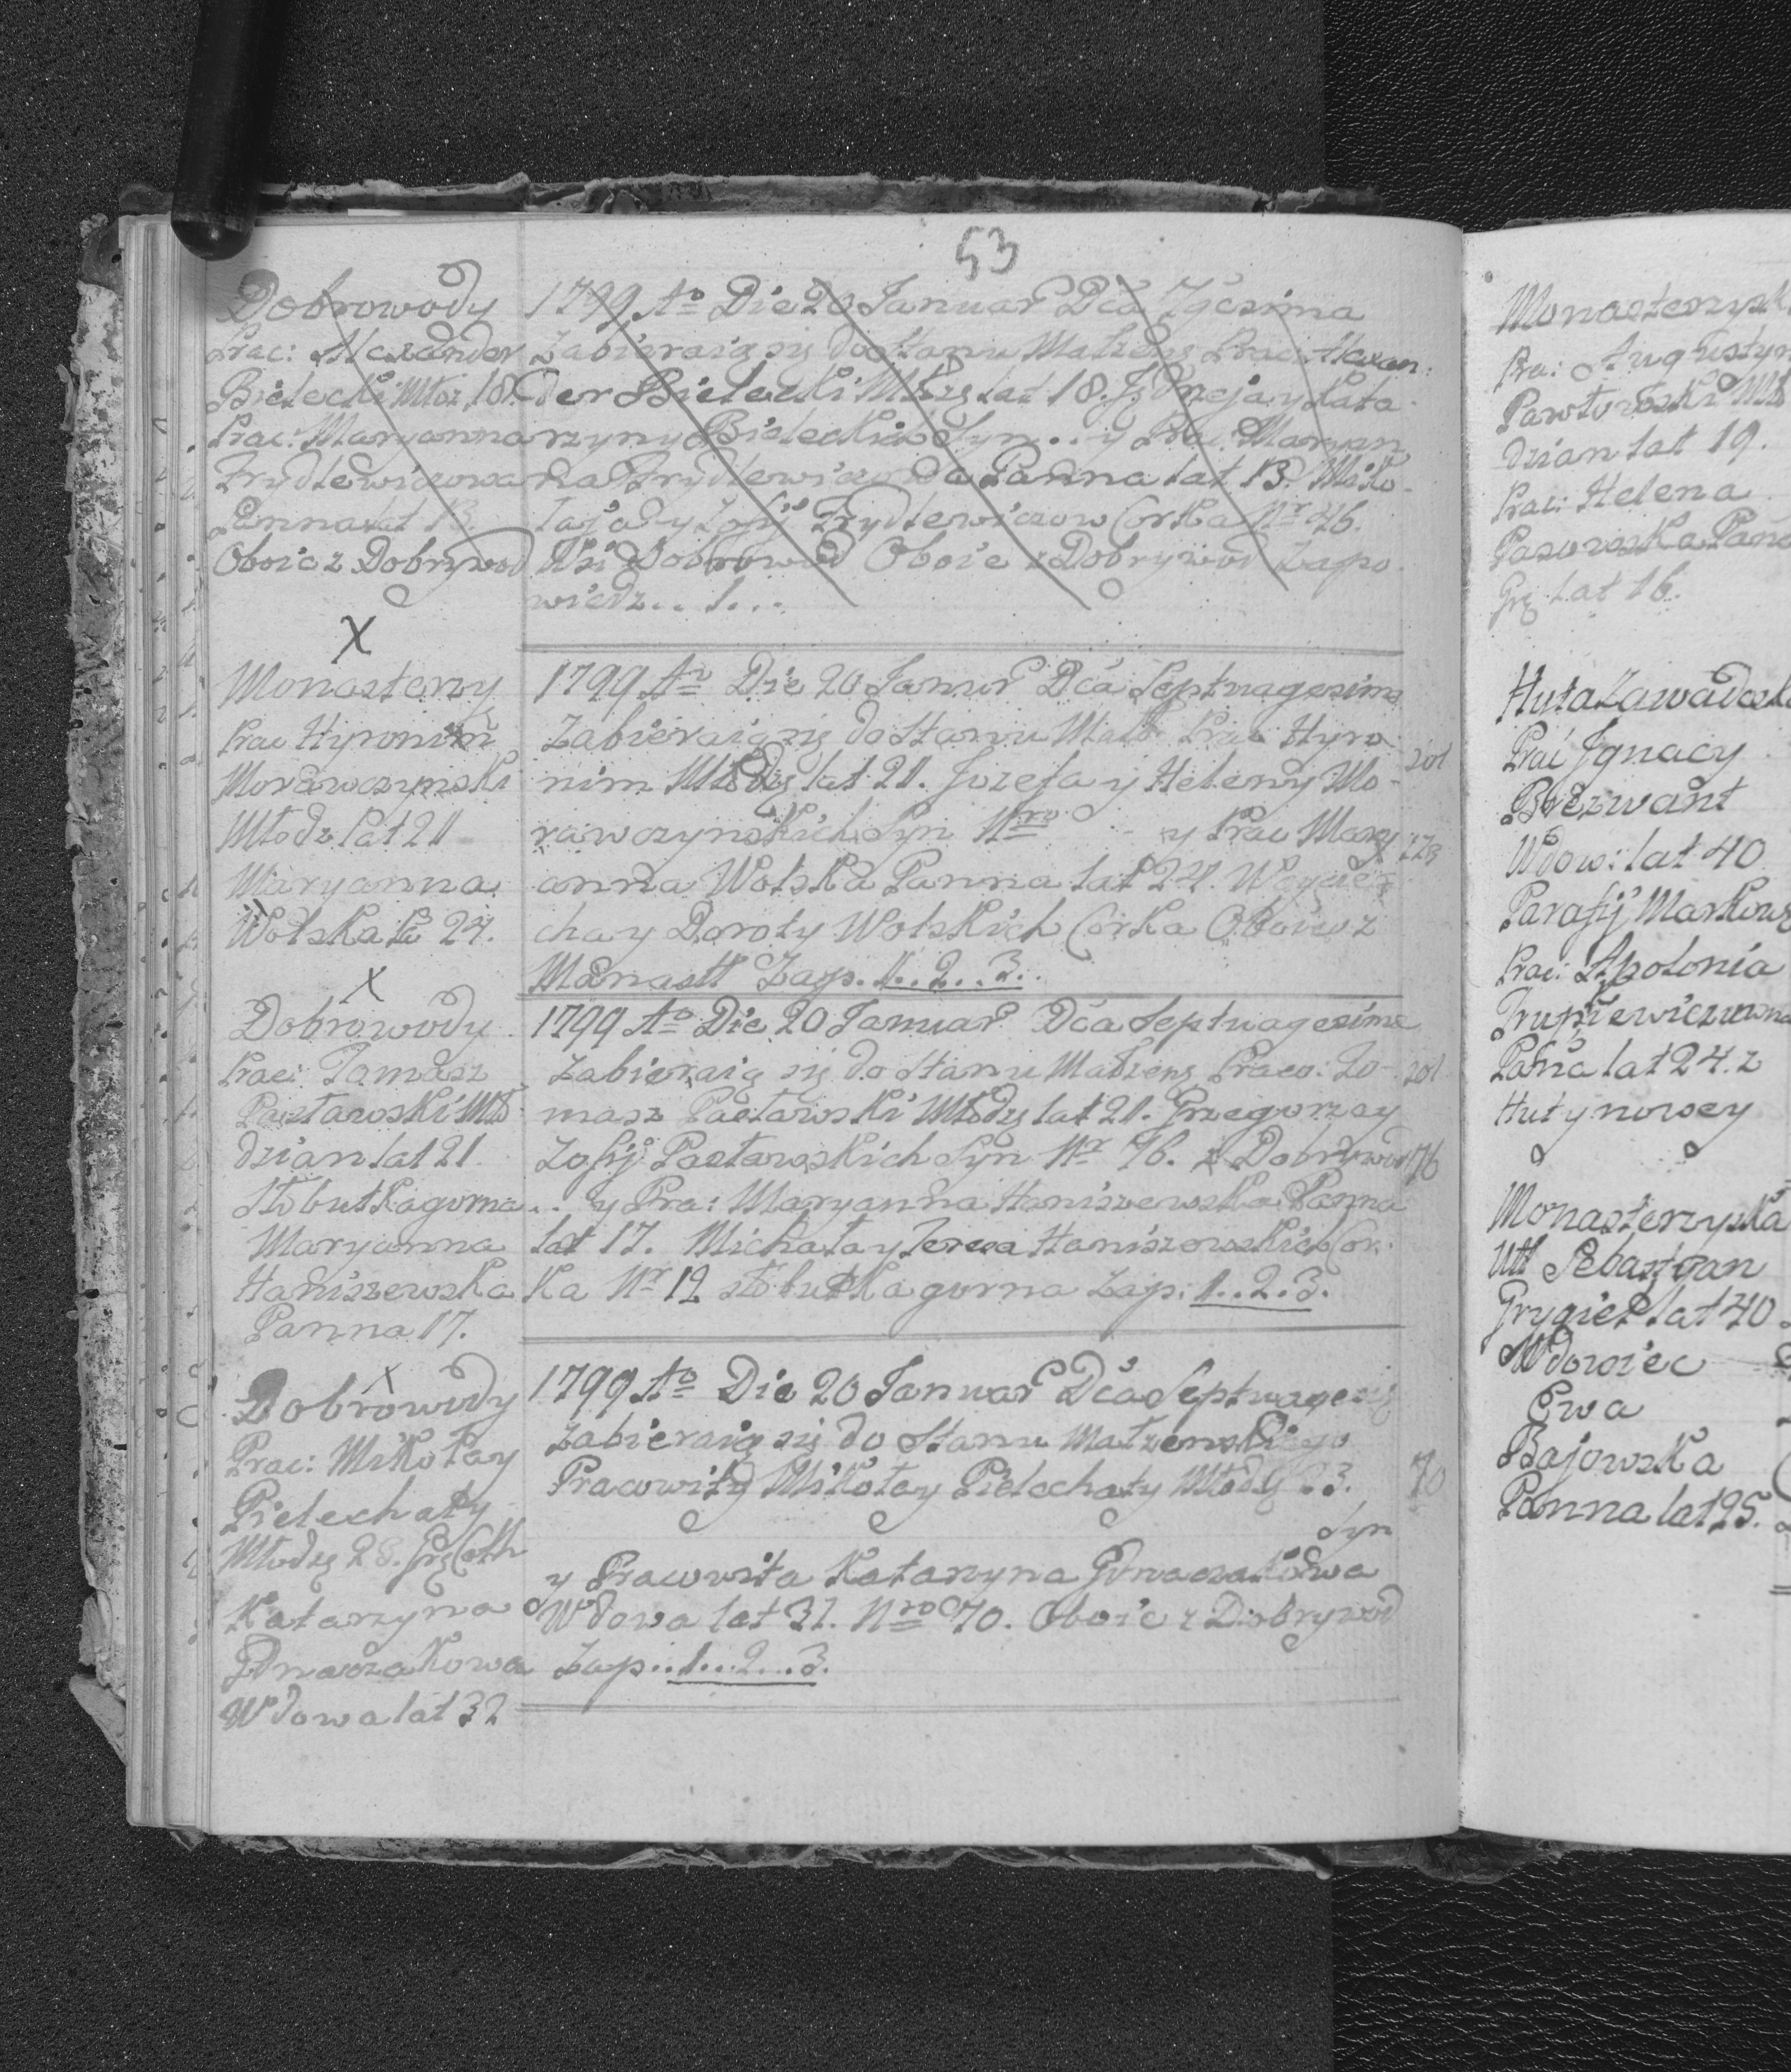 53
Dobrowody
Prac: Alexander
Bielecki Młoz 18.
Prac: Maryanna
Frydlewiczowa
Panna lat 13.
Oboie z Dobrywod
1799 Ao Die 20 Januar Dca 7gesima
Zabieraią się do Stanu Małżeng Prac: Alexan:
der Bielecki Młdzg lat 18. Jędrzeja y Kata
rzyny Bieleckich Syn .. y Prac: Maryan
na Frydlewiczowna Panna lat 13. Miko
łaja y Zofij Frydlewiczow Corka Nr 46.
Wsi Dobrowod Oboie z Dobrywod Zapo
wiedz .. 1 ...
X
Monastery
Prac Hyronim
Morawczynski
Młodz lat 21
Maryanna
Wolska la 24.
1799 Ao Die 20 Januar Dca Septuagesima
Zabieraią się do Stanu Małż Prac Hyro
nim Młodzg lat 21. Jozefa y Heleny Mo-
rawczynskich Syn Nro y Prac Mary
anna Wolska Panna lat 24. Woycie
cha y Doroty Wolskich Corka Oboie z
Monastt Zap. 1..2..3..
201
X
Dobrowody
Prac: Tomasz
Pastawski Mło
dzian lat 21
Słobutka gorna
Maryanna
Haniszewska
Panna 17.
1799 Ao Die 20 Januar Dca Septuagesima
Zabieraią się do Stanu Małżeng Praco: To-
masz Pastawski Młodzg lat 21. Grzegorza y
Zofij Pastawskich Syn Nr 76. z Dobrywod
.. y Pra: Maryanna Haniszewska Panna
lat 17. Michała y Teresa Haniszewskich Cor.
ka Nr 12 słobutka gorna Zap: 1..2.3.
201
76
X
Dobrowody
Prac: Mikołay
Pielechaty
Młodzg 23.
Katarzyna
Wdowa lat 32
1799 Ao Die 20 Januar Dca Septuagesi
Zabieraią się do Stanu Małżenskiego
Pracowity Mikołay Pielechaty Młodzg 23.
Syn
y Pracowita Katarzyna
Wdowa lat 32. Nro 70. Oboie z Dobrywod
Zap..1...2...3.
70
Monasterzysk
Pra: Augustyn
Pawłowski Mło
dzian lat 19.
Prac: Helena
Gasowska Pana
lat 16.
Huta Zawadzka
Prac Jgnacy
Brezwant
Wdow: lat 40
Parafij Markow
Prac: Apolonia
Pana lat 24. z
Huty nowey
Monasterzyska
Utt Sebastyan
Grygiel lat 40
Wdowiec
Ewa
Bajowska
Panna lat 25.